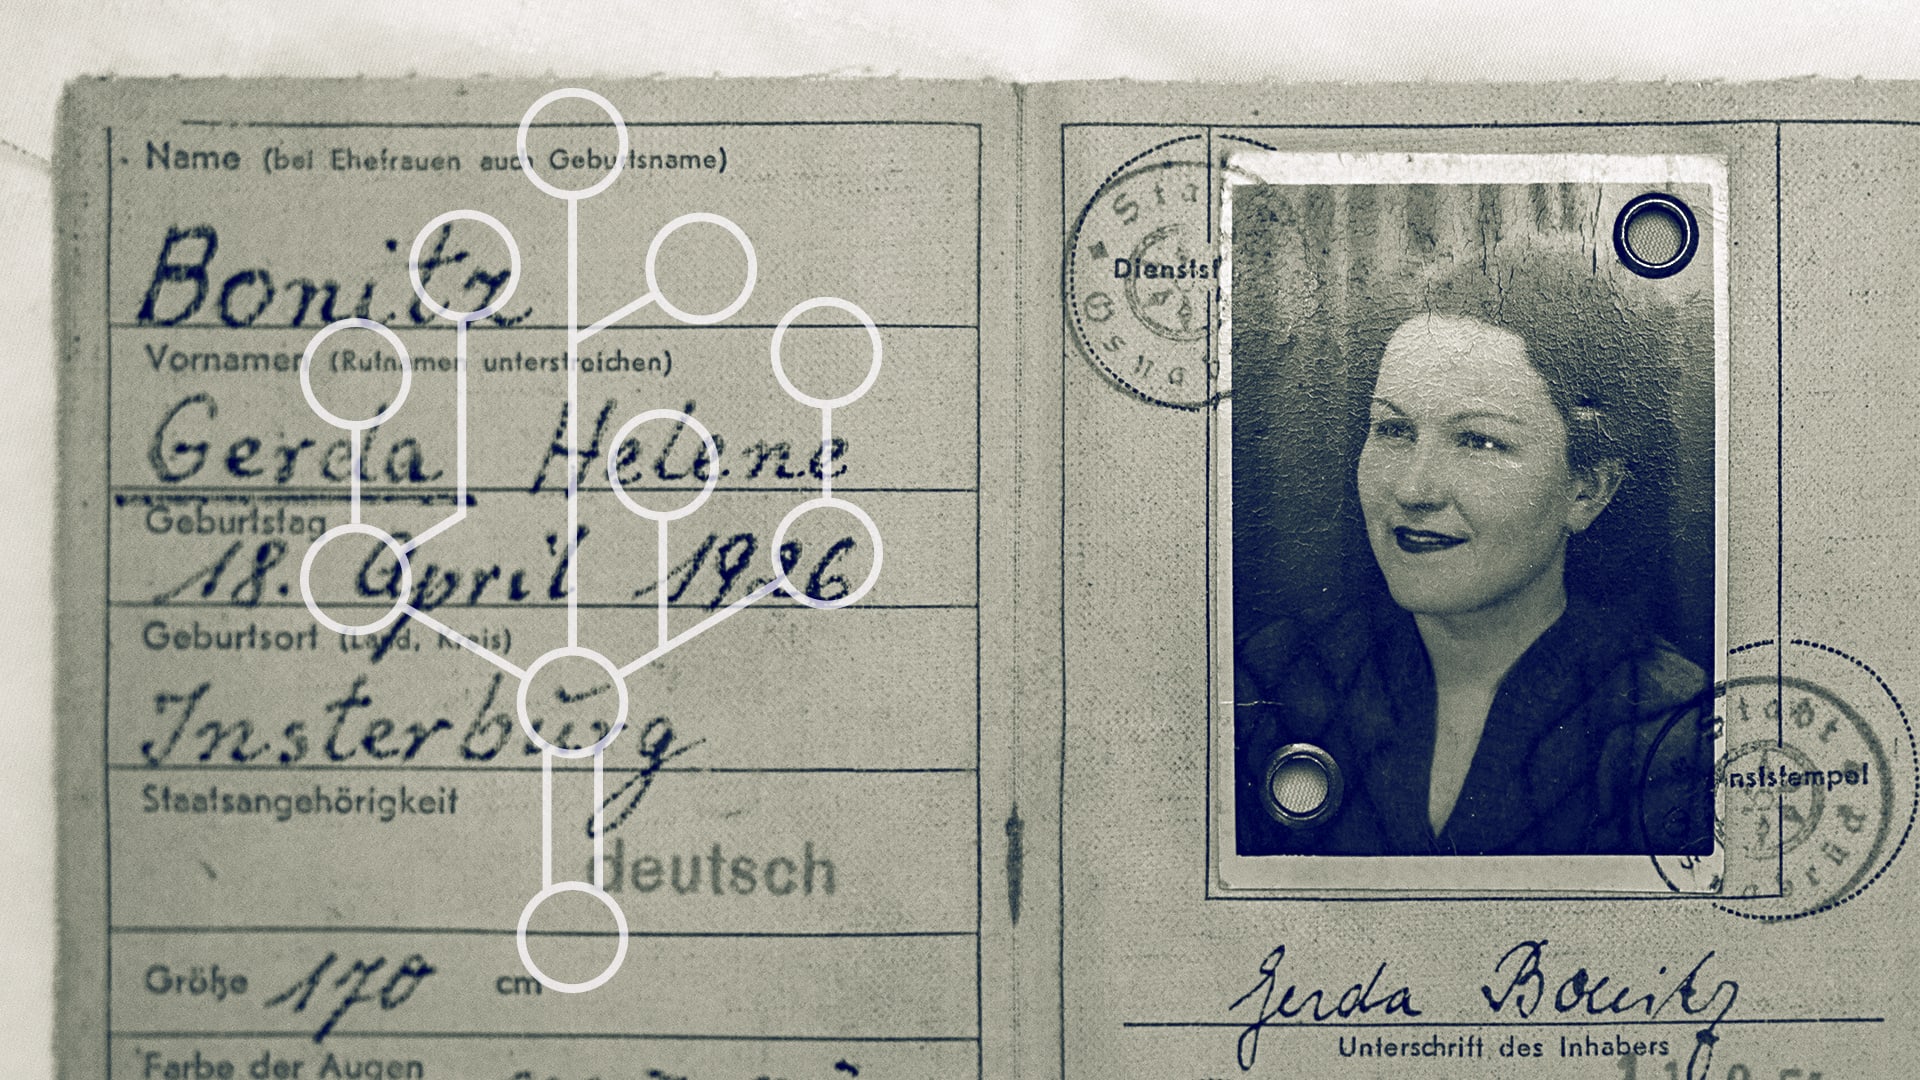 Name (bei Ehefrauen auch Geburtsname)
Bonitz
Vornamen (Rufnamen unterstreichen)
Gerda Helene
Geburtstag
18. April 1926
Geburtsort (Land, Kreis)
Insterburg
Staatsangehörigkeit
deutsch
Größe 170 cm
Farbe der Augen
Stadt
Osnabrück
Dienstst
Stadt
nststempel
Osnabrück
Gerda Bonitz
Unterschrift des Inhabers